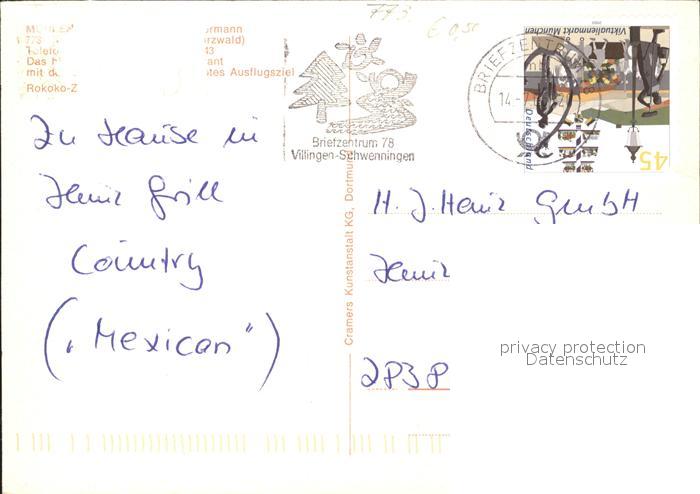 773
€ 0,50
ormann
773 rzwald)
Telefo 43
Das H ant
mit de tes Ausflugsziel
Rokoko-Z
Briefzentrum 78
Villingen-Schwenningen
BRIEFZENTRUM
14.-
Viktualienmarkt München
Deutschland
45
Zu Hause in
Heinz Grill
Country
(„Mexican")
Cramers Kunstanstalt KG, Dortmund
H. J. Heinz GmbH
Heinz
2838
privacy protection
Datenschutz